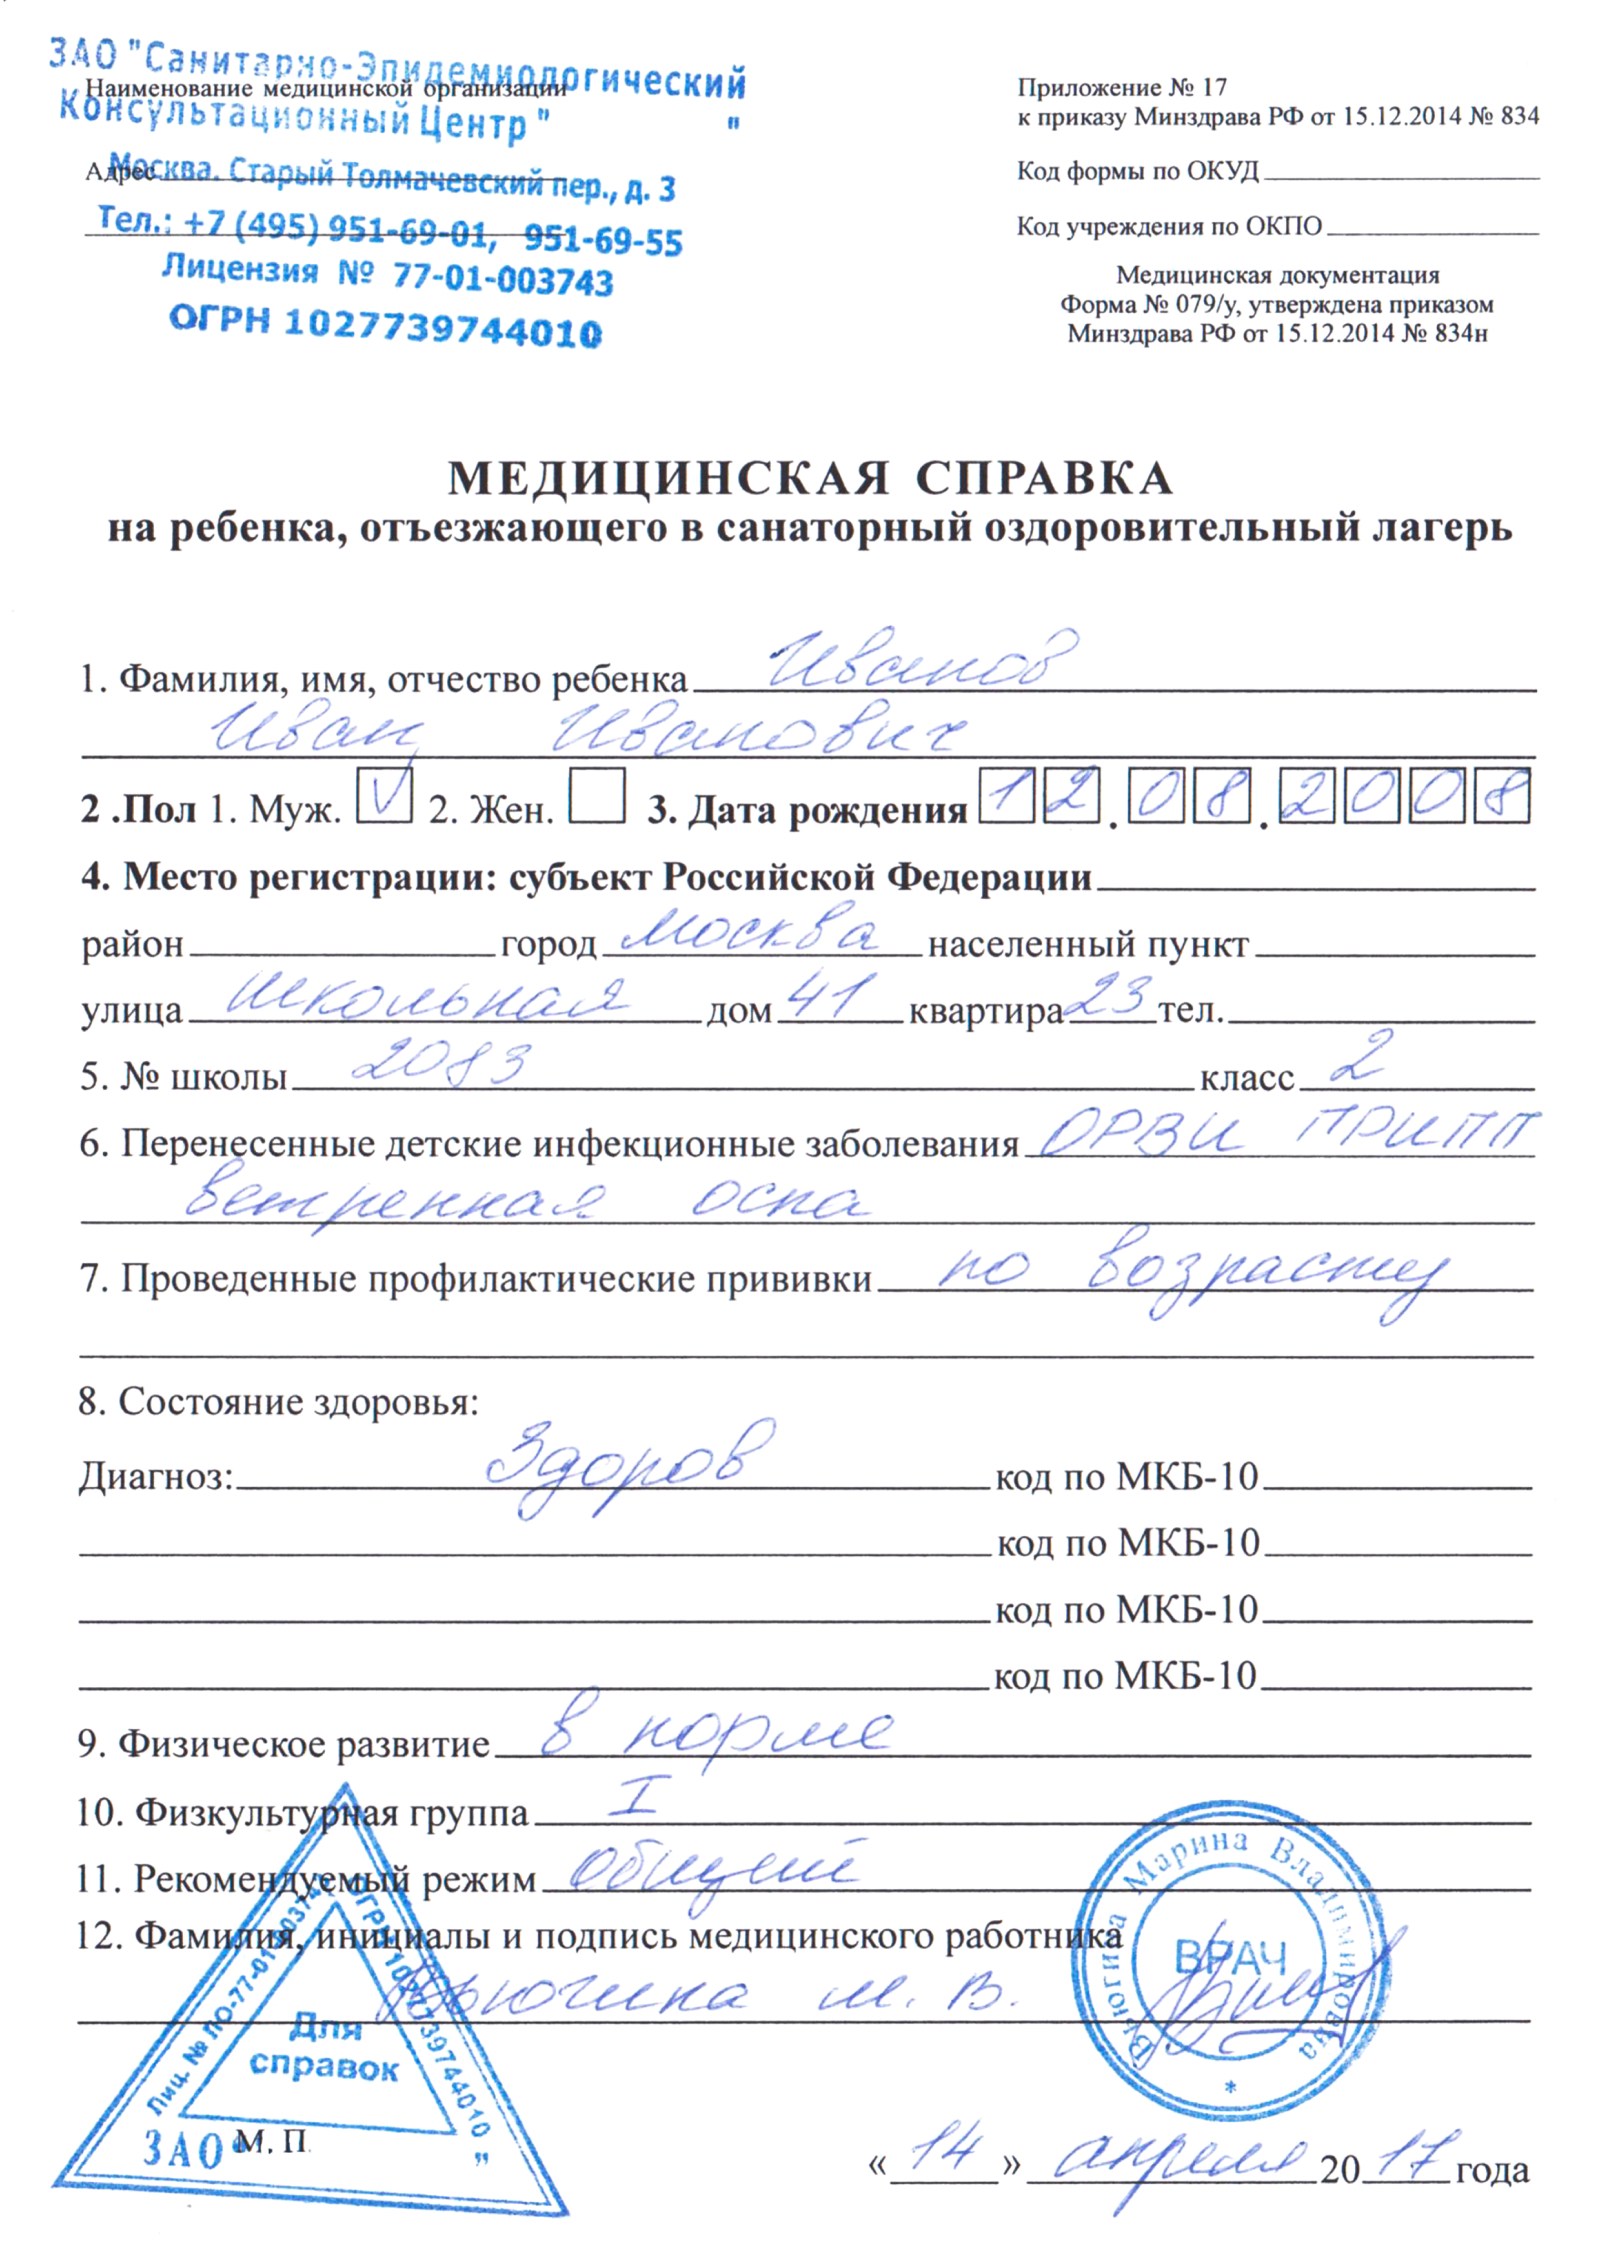 ЗАО "Санитарно-Эпидемиологический
Наименование медицинской организации
Консультационный Центр " "
Адрес
Москва. Старый Толмачевский пер., д. 3
Тел.: +7 (495) 951-69-01, 951-69-55
Лицензия № 77-01-003743
ОГРН 1027739744010
Приложение № 17
к приказу Минздрава РФ от 15.12.2014 № 834
Код формы по ОКУД
Код учреждения по ОКПО
Медицинская документация
Форма № 079/у, утверждена приказом
Минздрава РФ от 15.12.2014 № 834н
МЕДИЦИНСКАЯ СПРАВКА
на ребенка, отъезжающего в санаторный оздоровительный лагерь
1. Фамилия, имя, отчество ребенка Иванов
Иван Иванович
2 .Пол 1. Муж. V 2. Жен. 3. Дата рождения 12.08.2008
4. Место регистрации: субъект Российской Федерации
район город Москва населенный пункт
улица Школьная дом 41 квартира 23 тел.
5. № школы 2083 класс 2
6. Перенесенные детские инфекционные заболевания ОРВИ ГРИПП
ветренная оспа
7. Проведенные профилактические прививки по возрасту
8. Состояние здоровья:
Диагноз: Здоров код по МКБ-10
код по МКБ-10
код по МКБ-10
код по МКБ-10
9. Физическое развитие в норме
10. Физкультурная группа I
11. Рекомендуемый режим общий
12. Фамилия, инициалы и подпись медицинского работника
Вьюгина М. В.
Вьюгина Марина Владимировна
ВРАЧ
*
Лиц. № ЛО-77-01-003743
ОГРН 1027739744010
Для
справок
ЗАО " "
М. П.
«14» апреля 2017 года